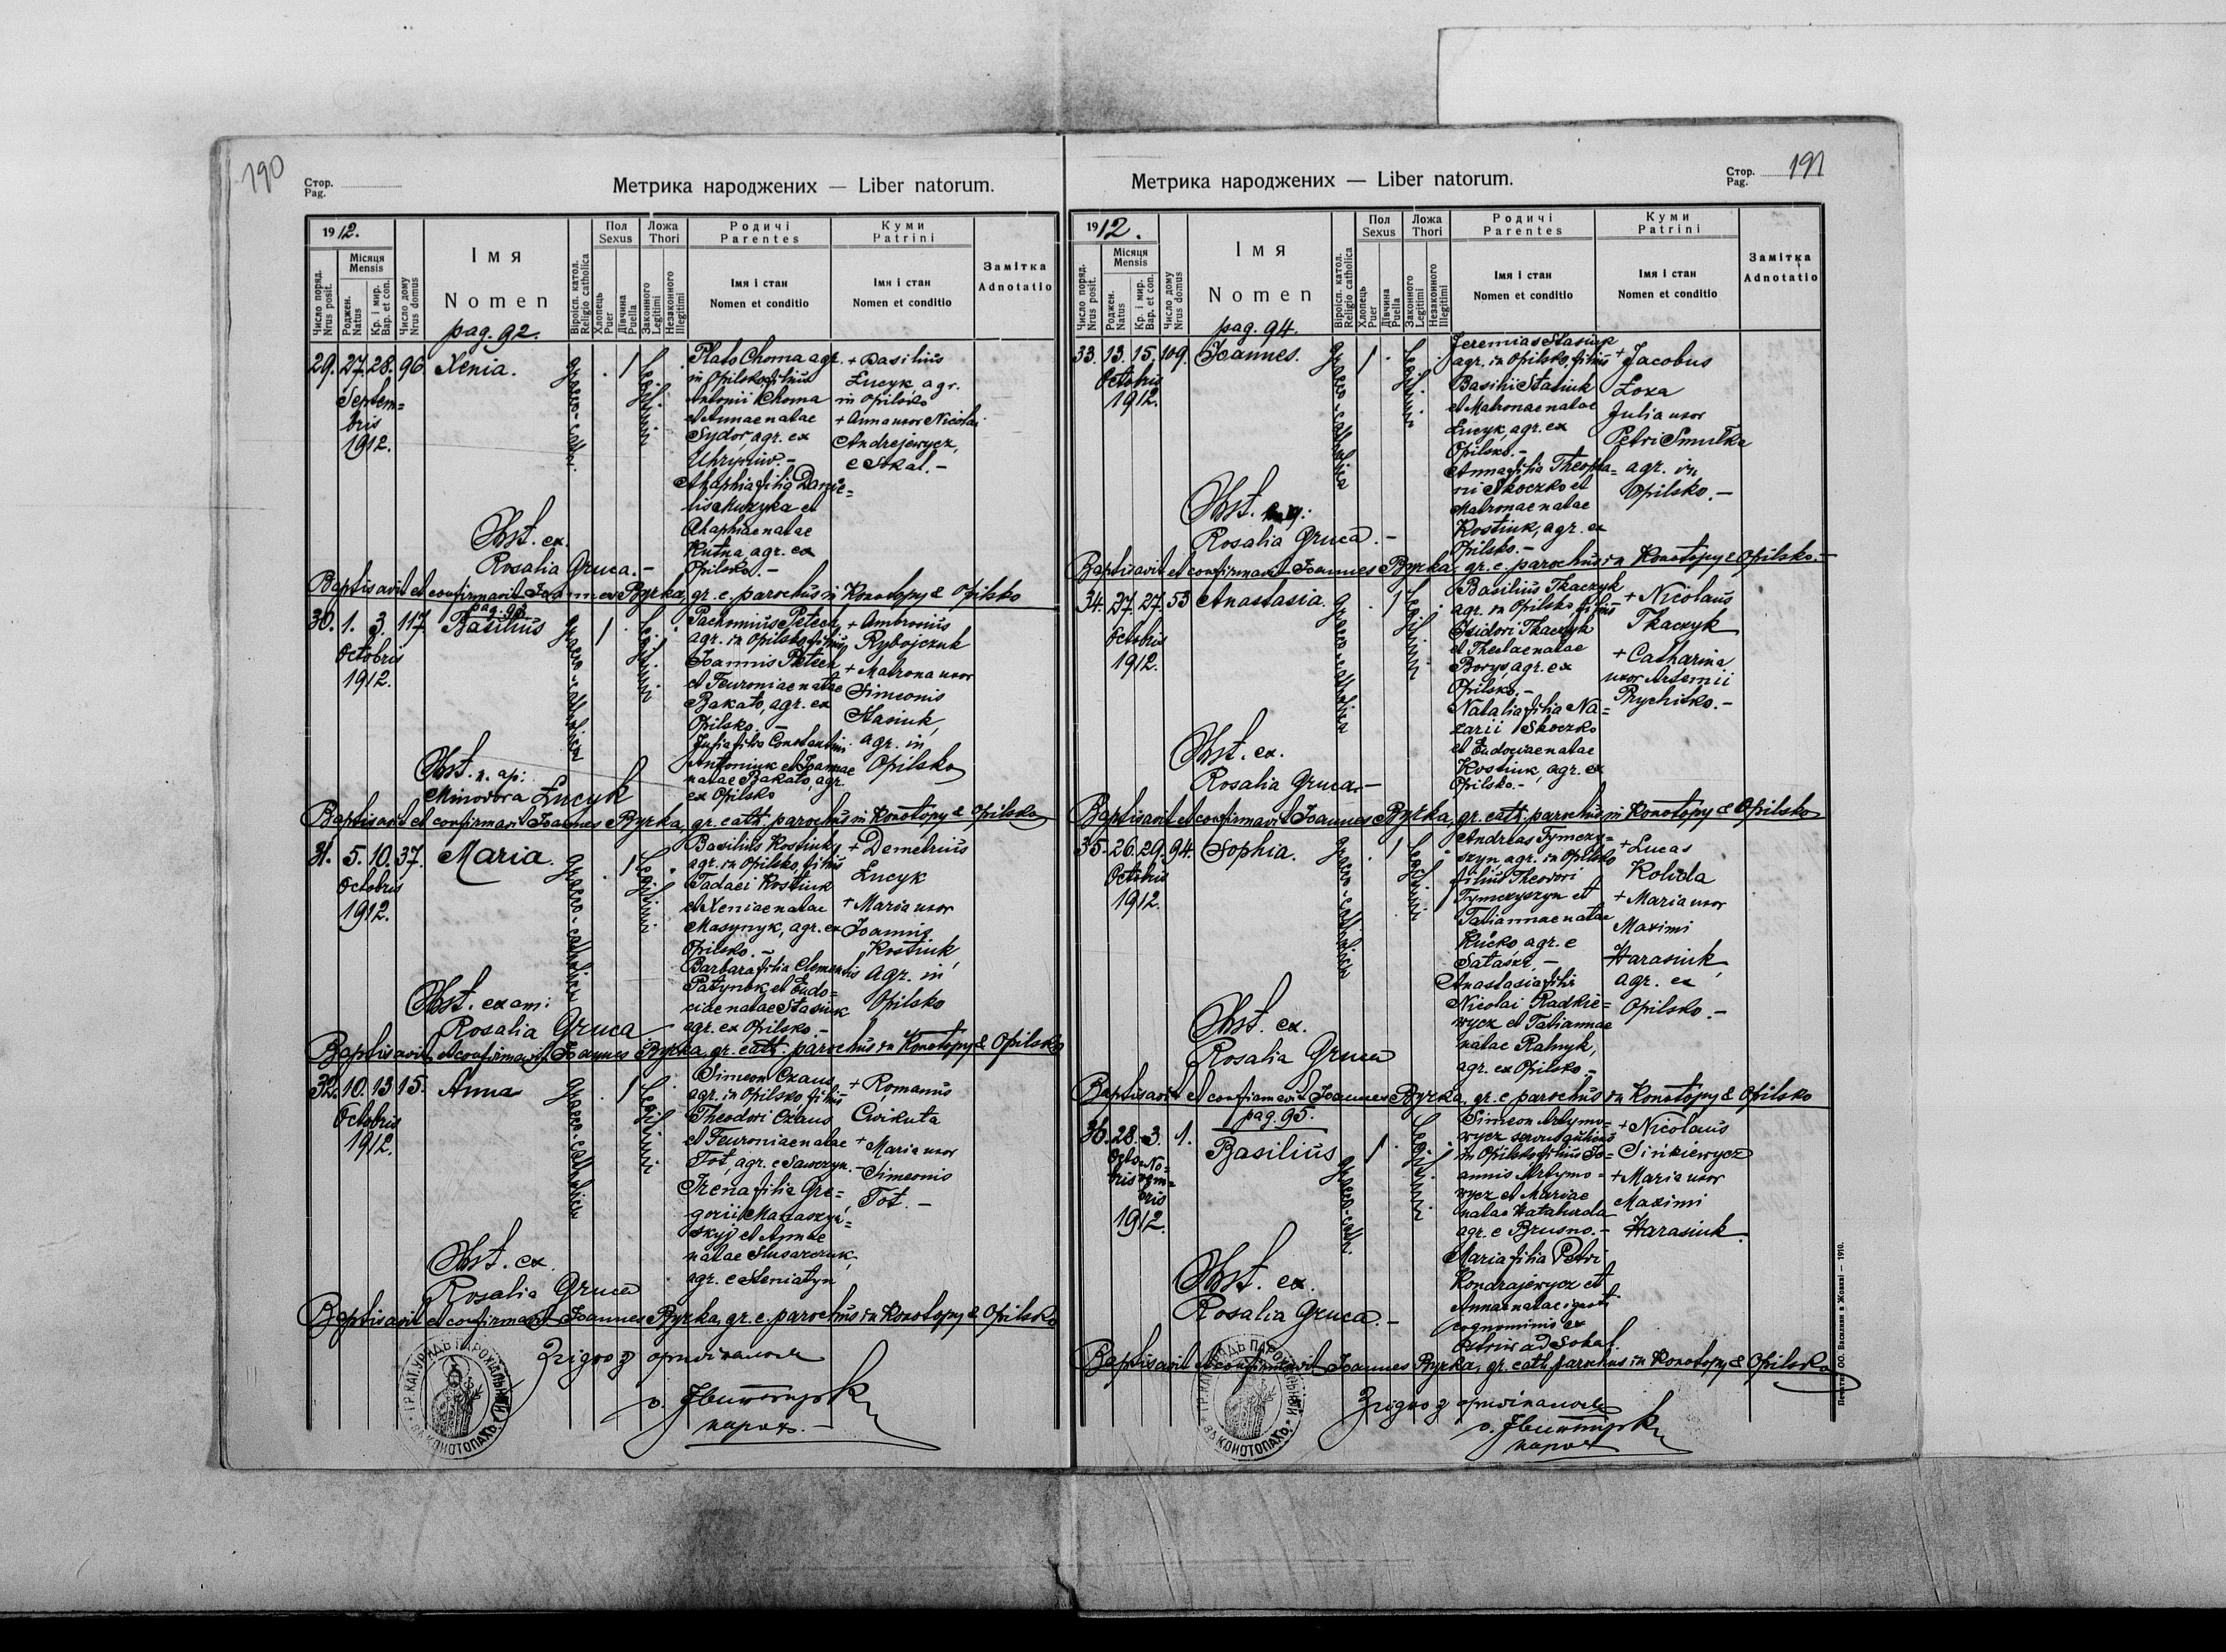 190
Стор.
Pag.
Метрика народжених — Liber natorum.
1912.
Число поряд.
Nrus posit.
Місяця
Mensis
Роджен.
Natus
Кр. і мир.
Bap. et con.
Число дому
Nrus domus
Імя
Nomen
Віроісп. катол.
Religio catholica
Пол
Sexus
Хлопець
Puer
Дівчина
Puella
Ложа
Thori
Законного
Legitimi
Незаконного
Illegitimi
Родичі
Parentes
Імя і стан
Nomen et conditio
Куми
Patrini
Імя і стан
Nomen et conditio
Замітка
Adnotatio
pag. 92.
29. 27. 28. 96. Xenia.
Septem=
bris
1912.
graeco-cath.
1
Legitimi
Plato Choma agr.
in Opilsko, filius
Antonii Choma
et Annae natae
Sydor, agr. ex
Uhryniw.-
Ahaphia filia Danie=
lis Muzyka et
Ahaphiae natae
Kutna, agr. ex
Opilsko.-
+ Basilius
Łucyk agr.
in Opilsko
+ Anna uxor Nicolai
Andrejewycz,
e Sokal.-
Obst. ex.
Rosalia Gruca.-
Baptisavit et confirmavit Joannes Byrka, gr. c. parochus in Konotopy & Opilsko
30. 1. 3. 117. Basilius
Octobris
1912.
graeco-catholica
1
Legitimi
Pachomius Petech,
agr. in Opilsko, filius
Joannis Petech
et Feuroniae natae
Bakato, agr. ex
Opilsko.-
Julia filia Constantini
Antoniuk et Joannae
natae Bakato, agr.
ex Opilsko
+ Ambrosius
Rybojczuk
+ Matrona uxor
Simeonis
Stasiuk,
agr. in
Opilsko
Obst. n. ap:
Minodora Łucyk
Baptisavit et confirmavit Joannes Byrka, gr. cath. parochus in Konotopy & Opilsko
31. 5. 10. 37. Maria.
Octobris
1912.
graeco-catholica
1
Legitimi
Basilius Kostiuk,
agr. in Opilsko, filius
Tadaei Kostiuk
et Xeniae natae
Masynyk, agr. ex
Opilsko.-
Barbara filia Clementis
Patynok et Eudo=
ciae natae Stasiuk
agr. ex Opilsko.-
+ Demetrius
Łucyk
+ Maria uxor
Joannis
Kostiuk,
agr. in
Opilsko
Obst. exam:
Rosalia Gruca
Baptisavit et confirmavit Joannes Byrka, gr. cath. parochus in Konotopy & Opilsko
32. 10. 13. 15. Anna
Octobris
1912.
graeco-catholica
1
Legitimi
Simeon Czaus
agr. in Opilsko filius
Theodori Czaus
et Feuroniae natae
Tot, agr. e Sawczyn.-
Irena filia Gre=
gorii
et Annae
natae Slusarczuk,
agr. e Steniatyn
+ Romanus
Cwikuta
+ Maria uxor
Simeonis
Tot.-
Obst. ex.
Rosalia Gruca
Baptisavit et confirmavit Joannes Byrka, gr. c. parochus in Konotopy & Opilsko
Згідно з оригіналом
о.
парох.-
ГР. КАТ. УРЯДЪ ПАРОХІАЛЬНЫЙ ВЪ КОНОТОПАХЪ
191
Стор.
Pag.
Метрика народжених — Liber natorum.
1912.
Число поряд.
Nrus posit.
Місяця
Mensis
Роджен.
Natus
Кр. і мир.
Bap. et con.
Число дому
Nrus domus
Імя
Nomen
Віроісп. катол.
Religio catholica
Пол
Sexus
Хлопець
Puer
Дівчина
Puella
Ложа
Thori
Законного
Legitimi
Незаконного
Illegitimi
Родичі
Parentes
Імя і стан
Nomen et conditio
Куми
Patrini
Імя і стан
Nomen et conditio
Замітка
Adnotatio
pag. 94.
33. 13. 15. 109. Joannes.
Octobris
1912.
graeco-catholica
1
Legitimi
Jeremias Stasiuk
agr. in Opilsko, filius
Basilii Stasiuk
et Matronae natae
Łucyk, agr. ex
Opilsko.-
Anna filia Theopha=
nii Skoczko et
Matronae natae
Kostiuk, agr. ex
Opilsko.-
+ Jacobus
Łoza
Julia uxor
Petri Smutka
agr. in
Opilsko.-
Obst.
Rosalia Gruca.-
Baptisavit et confirmavit Joannes Byrka, gr. c. parochus in Konotopy & Opilsko.-
34. 27. 27. 53 Anastasia.
Octobris
1912.
graeco-catholica
1
Legitimi
Basilius Tkaczyk
agr. in Opilsko filius
Isidori Tkaczyk
et Theclae natae
Borys, agr. ex
Opilsko.-
Natalia filia Na=
zarii Skoczko
et Eudociae natae
Kostiuk, agr. ex
Opilsko.-
+ Nicolaus
Tkaczyk
+ Catharina
uxor Artemii
Prychitko.-
Obst. ex.
Rosalia Gruca.-
Baptisavit et confirmavit Joannes Byrka, gr. cath. parochus in Konotopy & Opilsko
35. 26. 29. 94. Sophia.
Octobris
1912.
graeco-catholica
1
Legitimi
Andreas Tymczy=
szyn agr. in Opilsko
filius Theodori
Tymczyszyn et
Tatiannae natae
Kucko agr. e
Anastasia filia
Nicolai Radkie=
wycz et Tatiannae
natae Ratnyk,
agr. ex Opilsko.-
+ Lucas
Kolada
+ Maria uxor
Maximi
Harasiuk,
agr. ex
Opilsko.-
Obst. ex.
Rosalia Gruca
Baptisavit et confirmavit Joannes Byrka, gr. c. parochus in Konotopy & Opilsko
pag. 95.
36. 28. 3. 1. Basilius
Octo- No=
bris vem=
bris
1912.
graeco-cath.
1
Legitimi
Simeon Artymo=
wycz
in Opilsko filius Jo=
annis Artymo=
wycz et Mariae
natae Hataburda
agr. e Brusno.-
Maria filia Petri
Kondrajewycz et
Annae natae
cognominis ex
Ostriw ad Sokal.
+ Nicolaus
Sinkiewycz
+ Maria uxor
Maximi
Harasiuk.
Obst. ex.
Rosalia Gruca.-
Baptisavit et confirmavit Joannes Byrka, gr. cath. parochus in Konotopy & Opilsko
Згідно з оригіналом
о.
парох
ГР. КАТ. УРЯДЪ ПАРОХІАЛЬНЫЙ ВЪ КОНОТОПАХЪ
Печатня ОО. Василиян в Жовкві — 1910.